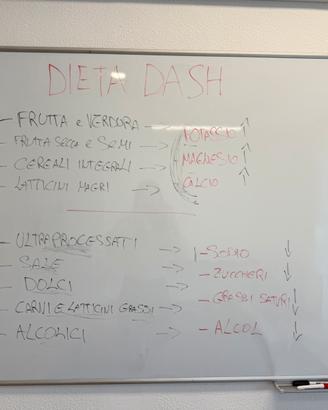 DIETA DASH
- FRUTTA e VERDURA → POTASSIO ↑
- FRUTTA SECCA e SEMI →
- CEREALI INTEGRALI → - MAGNESIO ↑
- LATTICINI MAGRI → CALCIO ↑
- ULTRAPROCESSATI → - SODIO ↓
- SALE → - ZUCCHERI ↓
- DOLCI → - GRASSI SATURI ↓
- CARNI E LATTICINI GRASSI →
- ALCOLICI → - ALCOL ↓